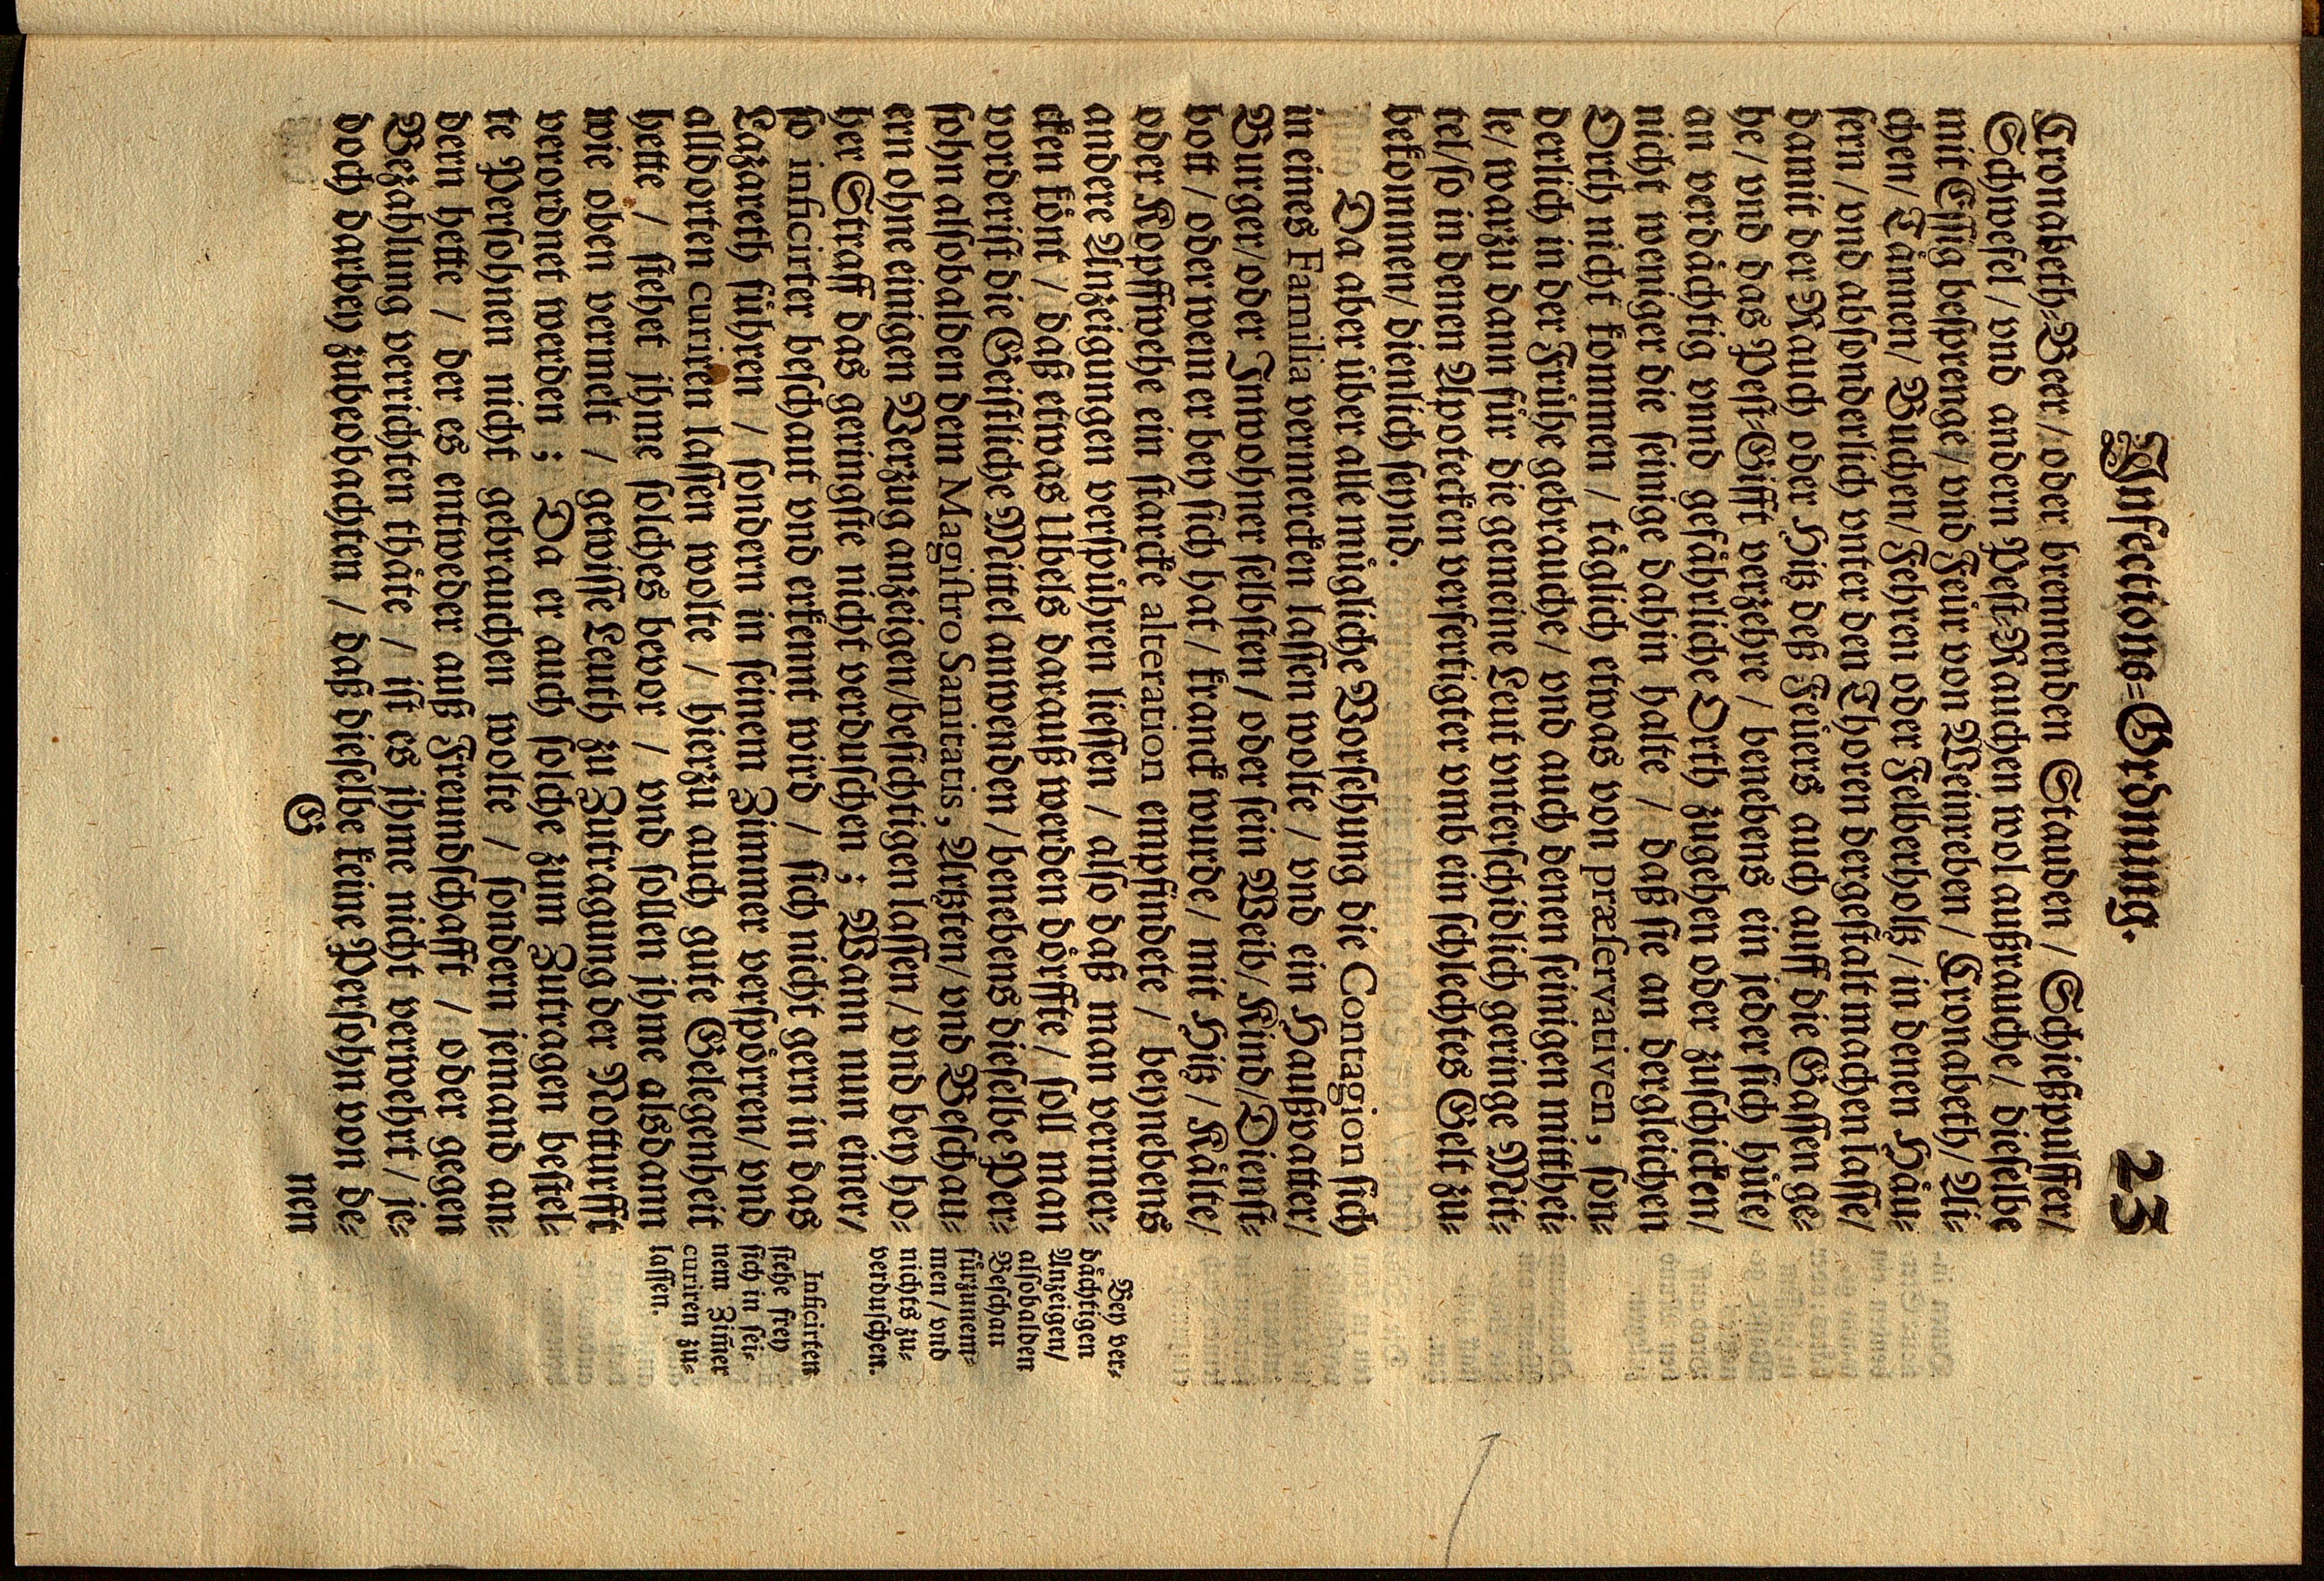 Infections-Ordnung. 23
Cronabeth-Beer/ oder brennenden Stauden / Schießpulffer/
Schwefel / vnd andern Pest-Rauchen wol außrauche/ dieselbe
mit Essig besprenge / vnd Feür von Weinreben / Cronabeth/ Ai-
chen / Tännen / Buchen / Fehren oder Felberholtz / in denen Häu-
sern / vnd absonderlich vnter den Thoren dergestalt machen lasse/
damit der Rauch oder Hitz deß Feuers auch auff die Gassen ge-
he / vnd das Pest-Gifft verzehre / benebens ein jeder sich hüte/
an verdächtig vnnd gefährliche Orth zugehen oder zuschicken/
nicht weniger die seinige dahin halte / daß sie an dergleichen
Orth nicht kommen / täglich etwas von præservativen, son-
derlich in der Frühe gebrauche / vnd auch denen seinigen mitthei-
le/ warzu dann für die gemeine Leut vnterschidlich geringe Mit-
tel/ so in denen Apotecken verfertigter vmb ein schlechtes Gelt zu-
bekommen/ dienlich seynd.
Da aber über alle mügliche Vorsehung die Contagion sich
in eines Familia vermercken lassen wolte / vnd ein Haußvatter/
Burger/ oder Inwohner selbsten / oder sein Weib/ Kind/ Dienst-
bott / oder wen er bey sich hat / kranck wurde/ mit Hitz / Kälte/
oder Kopffwehe ein starcke alteration empfindete / beynebens
andere Anzeigungen verspühren liessen / also daß man vermer-
cken könt / daß etwas Ubels darauß werden dörffte / soll man
vorderist die Geistliche Mittel anwenden / benebens dieselbe Per-
sohn alsobalden dem Magistro Sanitatis, Artzten/ vnd Beschau-
ern ohne einigen Verzug anzeigen/ besichtigen lassen / vnd bey ho-
her Straff das geringste nicht verduschen ; Wann nun einer/
so inficirter beschaut vnd erkennt wird / sich nicht gern in das
Lazareth führen / sondern in seinem Zimmer verspörren/ vnd
alldorten curiren lassen wolte / hierzu auch gute Gelegenheit
hette / stehet jhme solches bevor / vnd sollen jhme alsdann
wie oben vermelt / gewisse Leuth zu Zutragung der Notturfft
verordnet werden ; Da er auch solche zum Zutragen bestel-
te Persohnen nicht gebrauchen wolte / sondern jemand an-
dern hette / der es entweder auß Freundschafft / oder gegen
Bezahlung verrichten thäte / ist es jhme nicht verwehrt / je-
doch darbey zubeobachten / daß dieselbe keine Persohn von de-
G nen
Bey ver-
dächtigen
Anzeigen/
alsobalden
Beschau
fürzunem-
men / vnd
nichts zu-
verduschen.
Inficirten
stehe frey
sich in sei-
nem Zim̃er
curiren zu-
lassen.